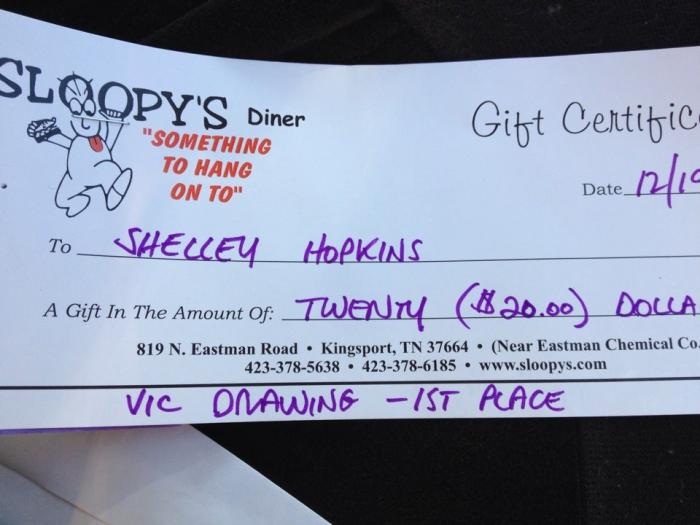 SLOOPY'S Diner
"SOMETHING
TO HANG
ON TO"
Gift Certific
Date 12/1
To SHELLEY HOPKINS
A Gift In The Amount Of: TWENTY ($20.00) DOLLA
819 N. Eastman Road • Kingsport, TN 37664 • (Near Eastman Chemical Co.
423-378-5638 • 423-378-6185 • www.sloopys.com
VIC DRAWING - 1ST PLACE